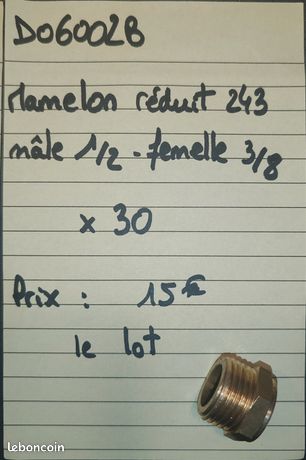 DO6002B
Mamelon réduit 243
mâle 1/2 - femelle 3/8
x 30
Prix : 15 €
le lot
leboncoin